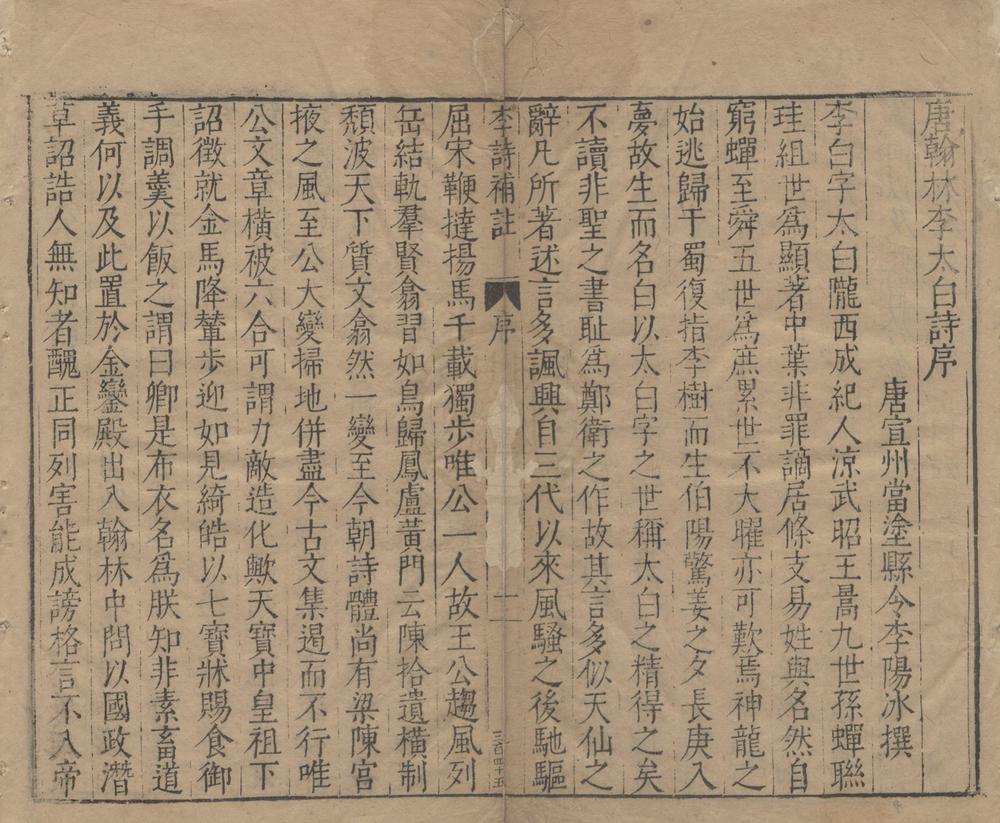 唐翰林李太白詩序
唐宣州當塗縣令李陽冰撰
李白字太白隴西成紀人涼武昭王暠九世孫蟬聯
珪組世爲顯著中葉非罪謫居條支易姓與名然自
窮蟬至舜五世爲庶累世不大曜亦可歎焉神龍之
始逃歸于蜀復指李樹而生伯陽驚姜之夕長庚入
夢故生而名白以太白字之世稱太白之精得之矣
不讀非聖之書耻爲鄭衛之作故其言多似天仙之
辭凡所著述言多諷興自三代以來風騷之後馳驅
李詩補註 序 一 三百四十五
屈宋鞭撻揚馬千載獨步唯公一人故王公趨風列
岳結軌羣賢翕習如鳥歸鳳盧黃門云陳拾遺橫制
頹波天下質文翕然一變至今朝詩體尚有梁陳宮
掖之風至公大變掃地併盡今古文集遏而不行唯
公文章橫被六合可謂力敵造化歟天寶中皇祖下
詔徵就金馬降輦步迎如見綺皓以七寶牀賜食御
手調羹以飯之謂曰卿是布衣名爲朕知非素畜道
義何以及此置於金鑾殿出入翰林中問以國政潛
草詔誥人無知者醜正同列害能成謗格言不入帝